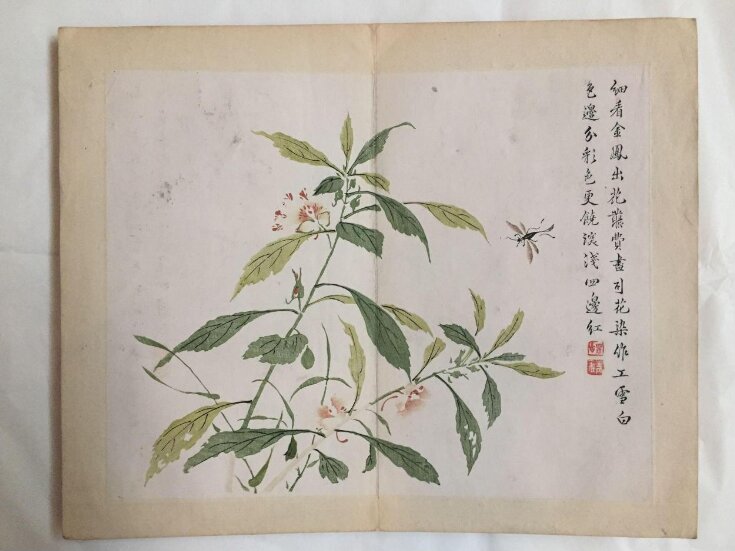 細看金鳳出花叢費盡司花染作工雪白
色邊分彩色更饒深淺四邊紅